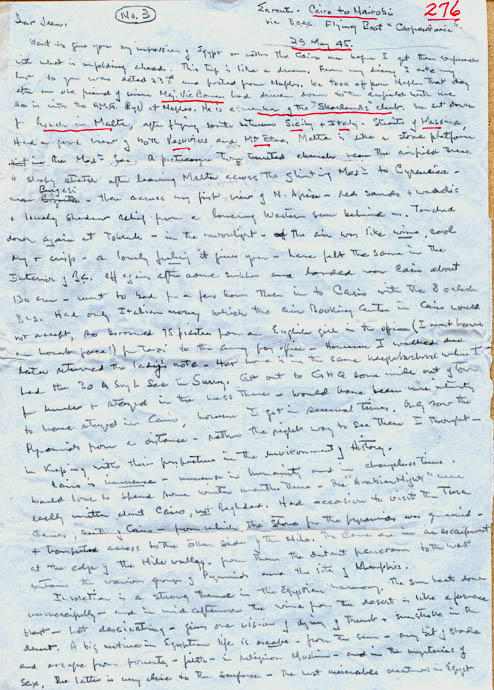 No. 3
Enroute - Cairo to Nairobi 276
Dear Jean: via B.O.A.C. Flying Boat "Coopertania"
29 May 45.
Want to give you my impressions of Egypt or rather Cairo before I get them confused
with what is unfolding ahead. This trip is like a dream. From my diary I note
to you was dated 23rd and posted from Naples. We took off from Naples that day
after an old friend of mine Maj. Vic Bann had driven down
He is a member of the "Skoalands" club. We set down
in Malta, after flying south between Sicily & Italy - Straits of Messina
Had a good view of both Vesuvius and Mt Etna. Malta is like a stone platform
in the Med Sea. A picturesque Tony turreted church near the airfield there
A sleepy stretch after leaving Malta across the glinting Med to Cyrenaica -
near Bengasi - then across my first view of N. Africa - red sands & waddis
& lovely shadow relief from a lowering western sun behind us. Touched
down again at Tobruk - in the moonlight - the air was like wine - cool
dry & crisp - a lonely feeling it gives you - have felt the same in the
Interior of B.C. Off again after some and landed near Cairo about
130 am - went to bed for a few hours then in to Cairo with the 8 oclock
bus. Had only Italian money which the air Booking Centre in Cairo would
not accept, so borrowed 75 piastres from an English girl in the office (I must have
an honest face!) for taxi to the army pay office - However I walked and
later returned the lady's note - Her home is in the same neighborhood where I
had the 30 A Svy Sec in Surrey. Got out to GHQ some miles out of town
for lunches & stayed in the mess there - would have been more interesting
to have stayed in Cairo, however I got in several times. Only saw the
Pyramids from a distance - rather the right way to see them I thought -
in Keeping with their perspective in the environment of History.
Cairo is immense - immense in humanity and in changeless time.
Would love to spend some winter months there - The Arabian Nights were
really written about Cairo, not Baghdad. Had occasion to visit the Tura
Caves, Cairo - from which the stone for the pyramids was quarried -
& transported across to the other side of the Nile. The Caves are in an escarpment
at the edge of the Nile valley. From them the distant panorama to the west
contains the various groups of Pyramids and the site of Memphis.
Insolation is a strong theme in the Egyptian harmony. The sun beats down
unmercifully - and in mid afternoon the wind from the desert is like a furnace
blast - hot desiccating - gives one visions of dying of thirst & sunstroke in the
desert. A big motive in Egyptian life is escape - from the sun - any bit of shade
and escape from poverty - filth - in religion Muslim - and in the mysteries of
Sex. The latter is very close to the surface - The most miserable creatures in Egypt